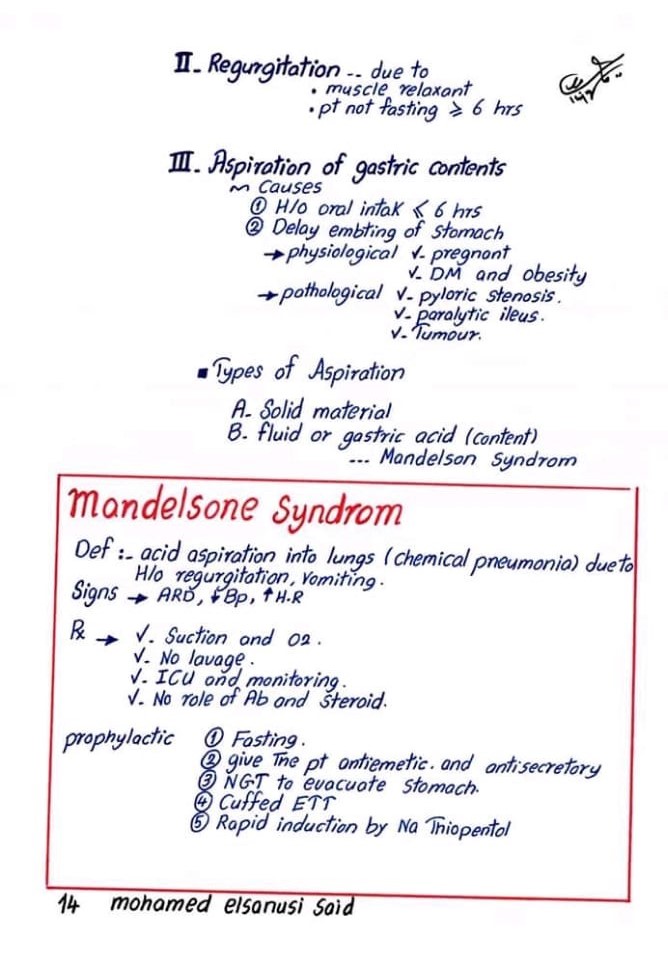 II- Regurgitation -- due to
• muscle relaxant
• pt not fasting ≥ 6 hrs
III- Aspiration of gastric contents
~ Causes
① H/o oral intak ≤ 6 hrs
② Delay embting of stomach
→ physiological √- pregnant
√- DM and obesity
→ pathological √- pyloric stenosis.
√- paralytic ileus.
√- Tumour.
▪ Types of Aspiration
A- Solid material
B- fluid or gastric acid (content)
--- Mandelson Syndrom
Mandelsone Syndrom
Def :- acid aspiration into lungs (chemical pneumonia) due to
H/o regurgitation, Vomiting.
Signs → ARD, ↓Bp, ↑H.R
Rx → √- Suction and O2.
√- No lavage.
√- ICU and monitoring.
√- No role of Ab and Steroid.
prophylactic ① Fasting.
② give The pt antiemetic. and antisecretory
③ NGT to evacuate Stomach.
④ Cuffed ETT
⑤ Rapid induction by Na Thiopental
14 mohamed elsanusi Said